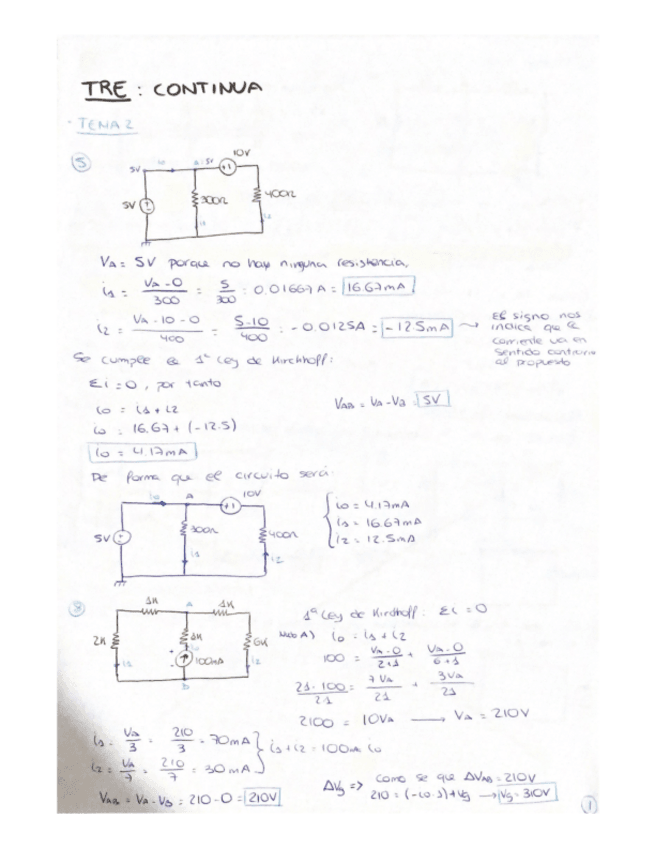 TRE : CONTINUA
· TEMA 2
5
i0 A: 5V 10V
5V
5V 300Ω 400Ω
i1 i2
VA = 5V porque no hay ninguna resistencia.
i1 = VA - 0 / 300 = 5 / 300 : 0.01667 A = 16.67mA
i2 = VA - 10 - 0 / 400 = 5-10 / 400 : -0.0125A = -12.5mA → El signo nos
indica que la
corriente va en
sentido contrario
al propuesto
Se cumple la 1ª Ley de Kirchhoff:
Σi = 0, por tanto
i0 = i1 + i2
VAB = VA - VB = 5V
i0 = 16.67 + (-12.5)
i0 = 4.17mA
De forma que el circuito será:
i0 A 10V
5V 300Ω 400Ω
i1 i2
i0 = 4.17mA
i1 = 16.67mA
i2 = 12.5mA
8
1K A 1K
2K 1K 6K
i0
100mA
i1 i2
B
1ª Ley de Kirchhoff: Σi = 0
Nudo A) i0 = i1 + i2
100 = VA - 0 / 2+1 + VA - 0 / 6+1
21·100 / 21 = 7VA / 21 + 3VA / 21
2100 = 10VA → VA = 210V
i1 = VA / 3 = 210 / 3 = 70mA
i2 = VA / 7 = 210 / 7 = 30mA
i1 + i2 = 100mA i0
VAB = VA - VB = 210 - 0 = 210V
ΔVg => como se que ΔVAB = 210V
210 = (-i0·1) + Vg → Vg = 310V
1